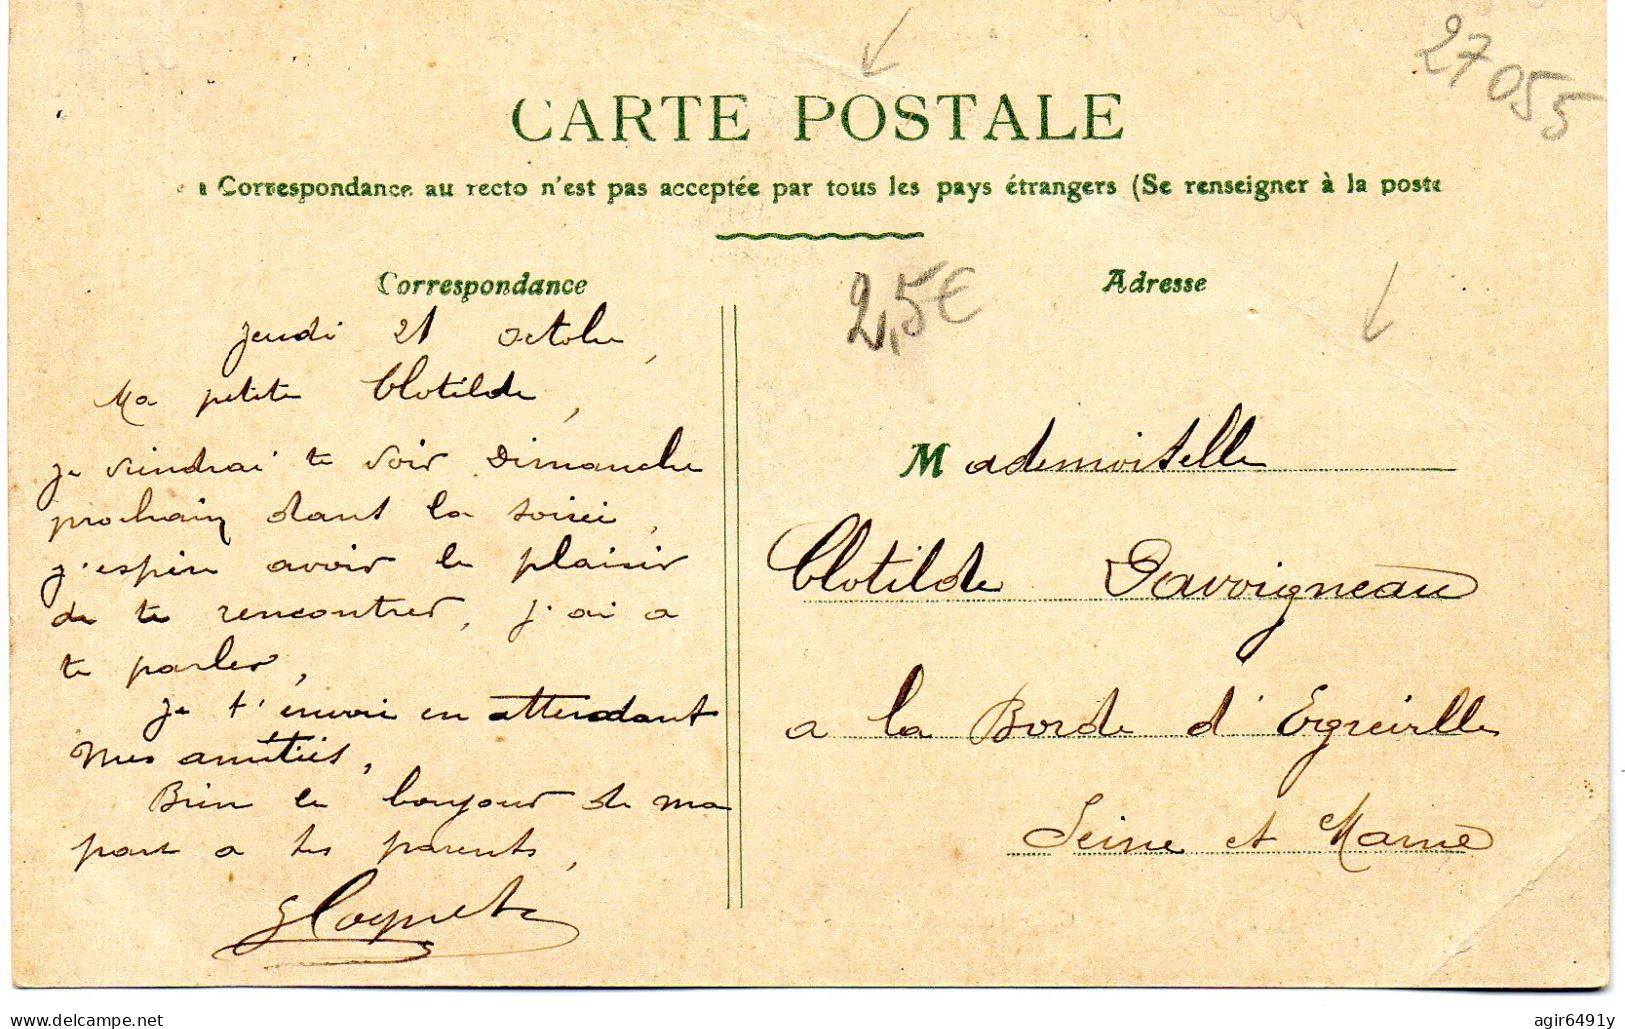 27055
CARTE POSTALE
Correspondance au recto n'est pas acceptée par tous les pays étrangers (Se renseigner à la poste
Correspondance
jeudi 21 octobre,
Ma petite Clotilde,
je viendrai te voir Dimanche
prochain dans la soirée,
j'espère avoir le plaisir
de te rencontrer, j'ai a
te parler,
Je t'envoi en attendant
mes amitiés,
Bien le bonjour de ma
part a tes parents,
2,5€
Adresse
Mademoiselle
Clotilde Savoigneau
a la Borde d'Egreville
Seine et Marne
delcampe.net
agir6491y